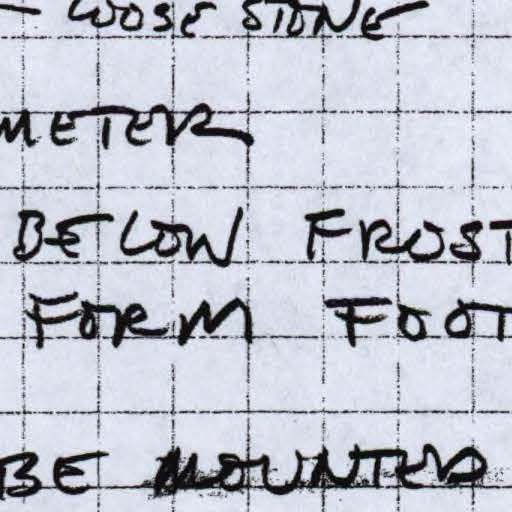 - LOOSE STONE
METER
BELOW FROST
FORM FOOT
BE MOUNTED